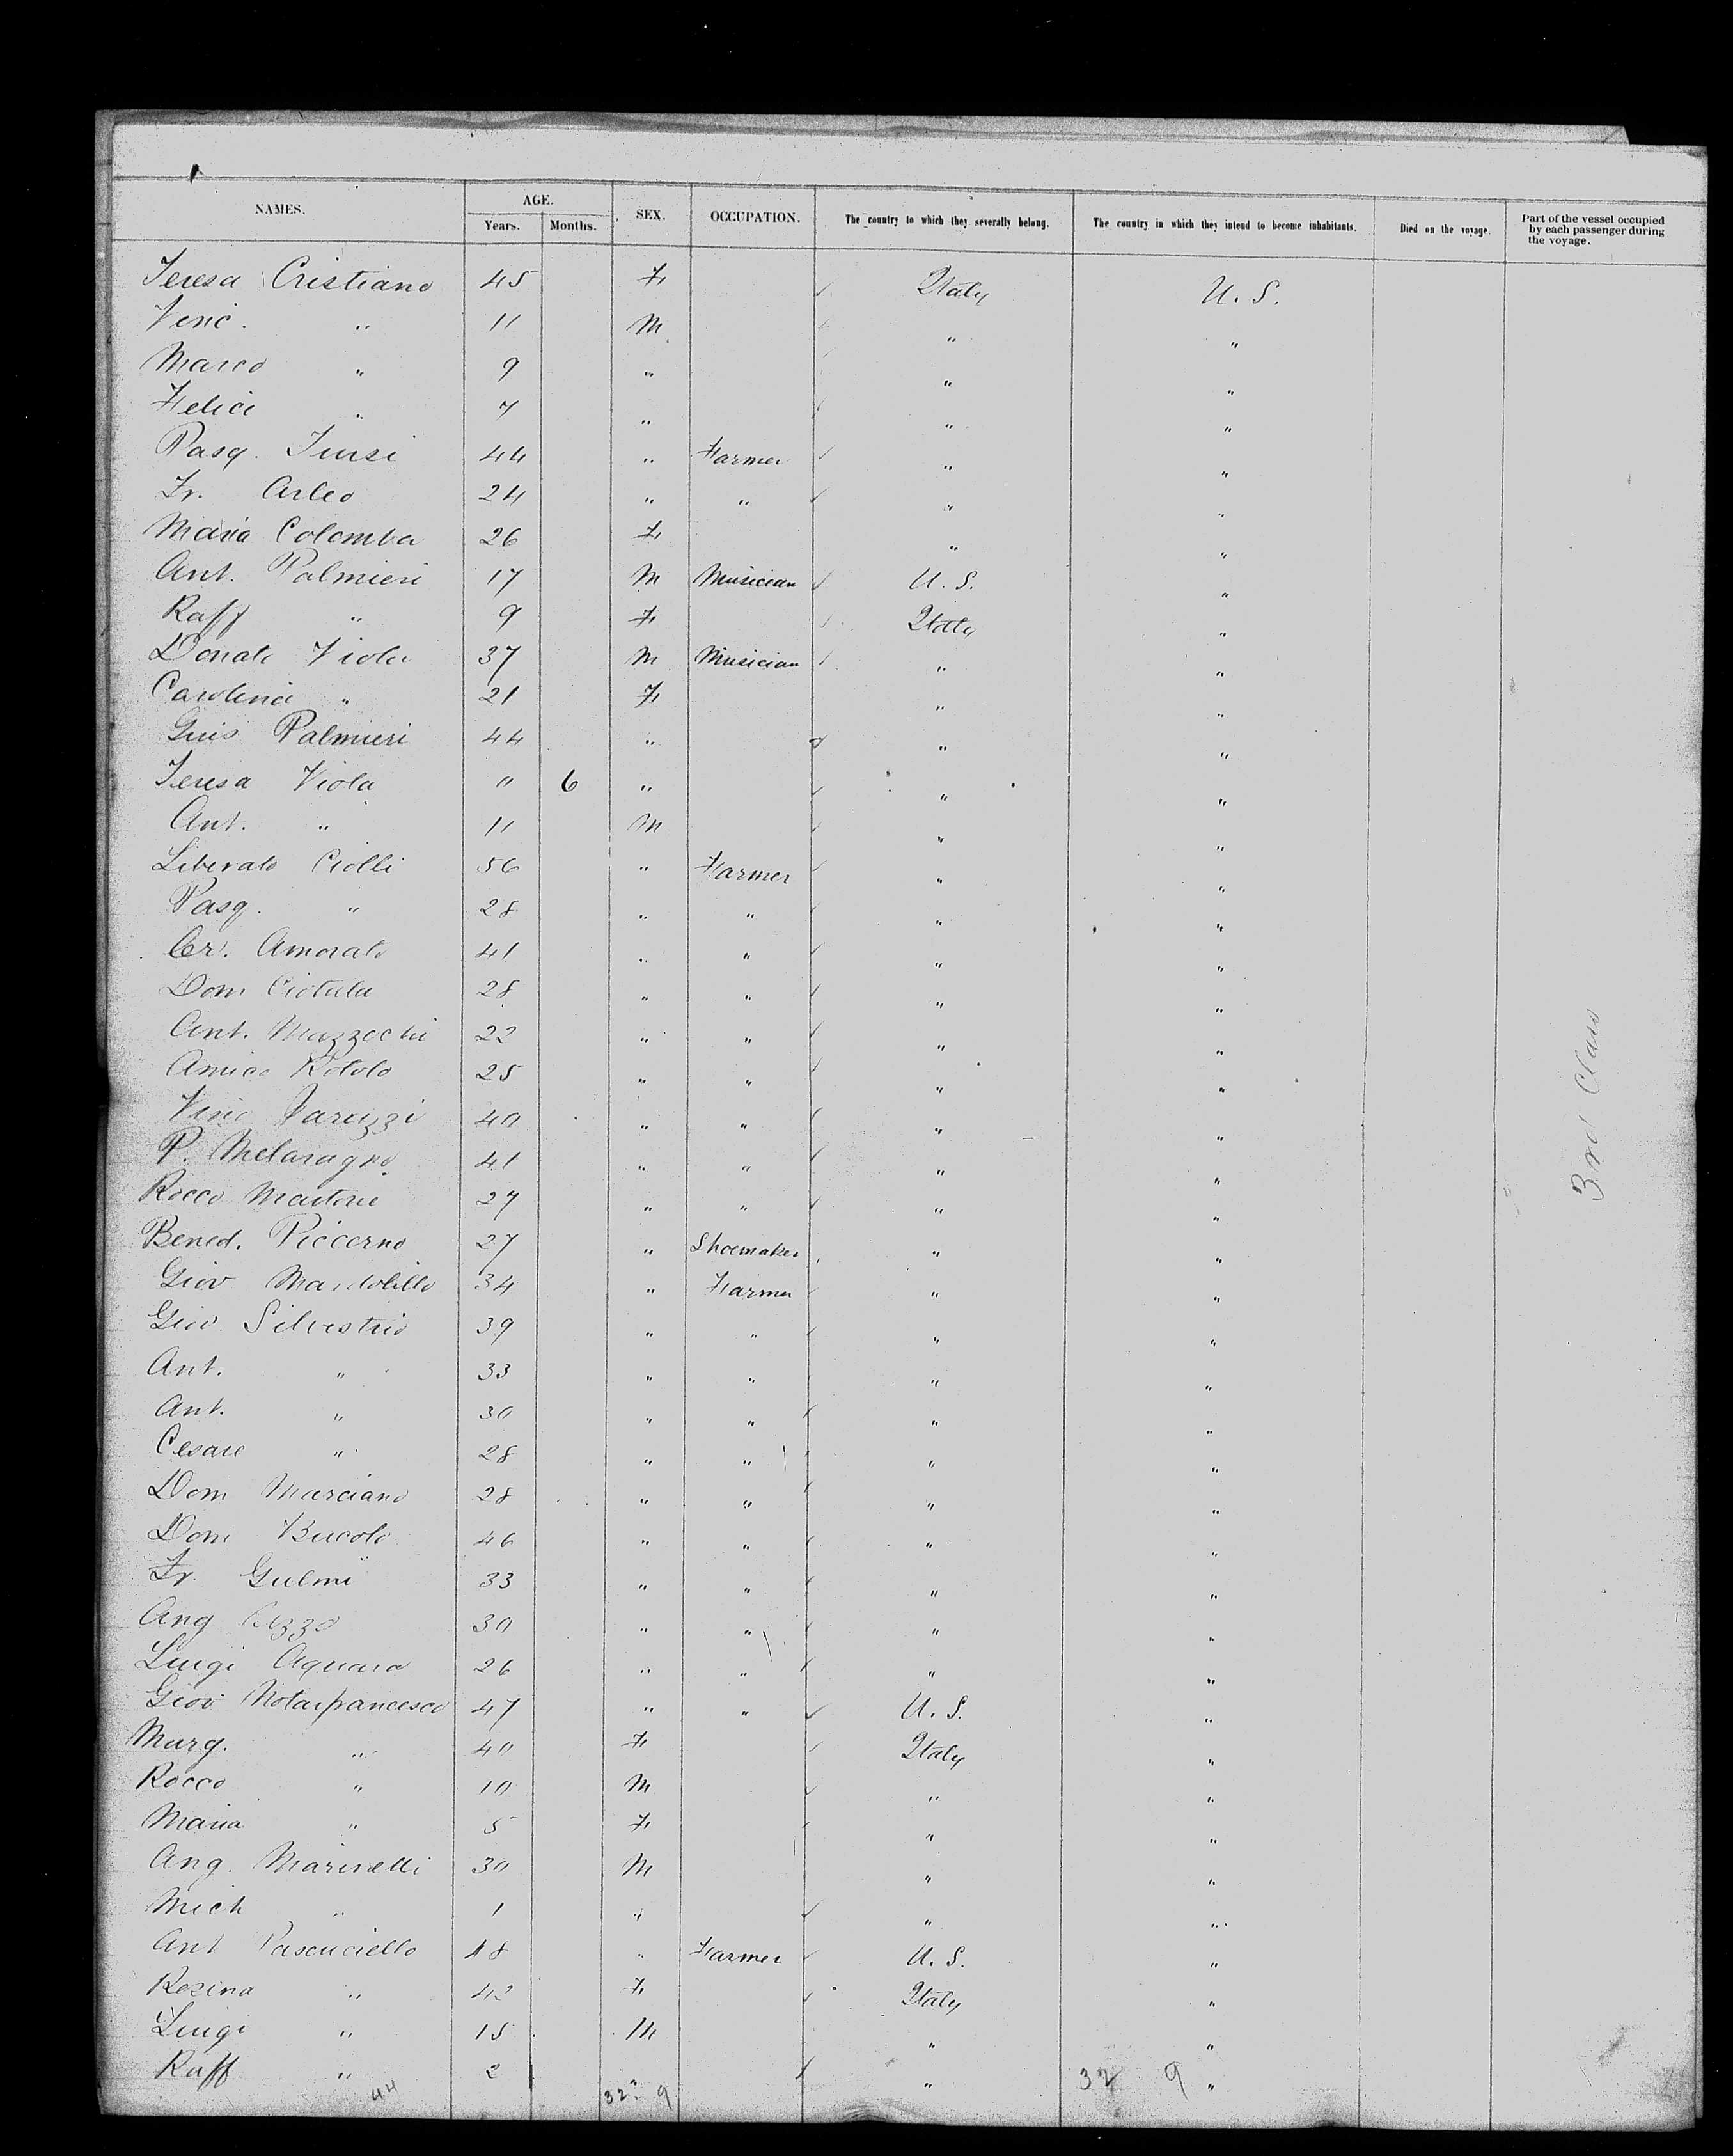 NAMES. AGE. SEX. OCCUPATION. The country to which they severally belong. The country in which they intend to become inhabitants. Died on the voyage. Part of the vessel occupied by each passenger during the voyage.
Years. Months.
Teresa Cristiano 45 F Italy U. S.
Vinc. " 11 M " "
Marco " 9 " " "
Felice " 7 " " "
Pasq. 44 " Farmer " "
Fr. Arleo 24 " " " "
Maria Colomba 26 F " "
Ant. Palmieri 17 M Musician U. S. "
Raff " 9 F Italy "
Donato Viola 37 M Musician " "
Carolina " 21 F " "
Gius Palmieri 44 " " "
Teresa Viola " 6 " " "
Ant. " 11 M " "
Liberato Ciolli 56 " Farmer " "
Pasq. " 28 " " " "
Cr. Amorato 41 " " " "
Dom Ciotula 28 " " " "
Ant. Mazzochi 22 " " " "
Amico Rotolo 25 " " " "
Vinc 40 " " " "
P. Melaragno 41 " " " "
Rocco 27 " " " "
Bened. Piccerno 27 " Shoemaker " "
Giov Mandolillo 34 " Farmer " "
Giov. Silvestrio 39 " " " "
Ant. " 33 " " " "
Ant. " 30 " " " "
Cesare " 28 " " " "
Dom Marciano 28 " " " "
Dom Bucolo 46 " " " "
Fr. Gulmi 33 " " " "
Ang 30 " " " "
Luigi Aquara 26 " " " "
Giov Notarfrancesco 47 " " U. S. "
Marg. " 40 F Italy "
Rocco " 10 M " "
Maria " 5 F " "
Ang. Marinelli 30 M " "
Mich " 1 " " "
Ant Pascuciello 48 " Farmer U. S. "
Rosina " 42 F Italy "
Luigi " 15 M " "
Raff " 2 " "
44 32 9 32 9
3rd Class